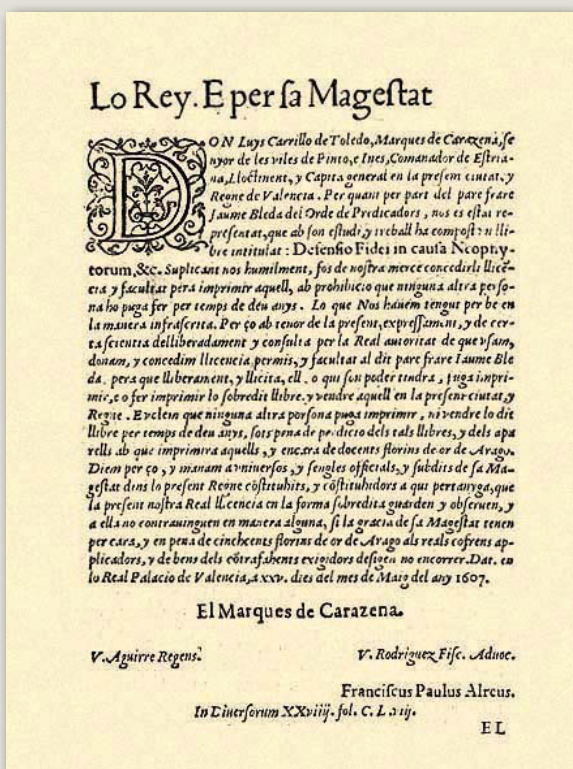 Lo Rey. E per ſa Mageſtat
DON Luys Carrillo de Toledo, Marques de Carazena, ſe
nyor de les viles de Pinto, e Ines, Comanador de Eſtria-
na, Lloctinent, y Capita general en la preſent ciutat, y
Regne de Valencia. Per quant per part del pare frare
Iaume Bleda del Orde de Predicadors, nos es eſtat re-
preſentat, que ab ſon eſtudi, y treball ha compoſt vn lli-
bre intitulat: Defenſio Fidei in cauſa Neophy-
torum, &c. Suplicant nos humilment, fos de noſtra merce concedirli llicē-
cia y facultat pera imprimir aquell, ab prohibicio que ninguna altra perſo-
na ho puga fer per temps de deu anys. Lo que Nos hauem tengut per be en
la manera infraſcrita. Per ço ab tenor de la preſent, expreſſament, y de cer-
ta ſcientia delliberadament y conſulta per la Real autoritat de que vſam,
donam, y concedim llicencia permis, y facultat al dit pare frare Iaume Ble
da, pera que lliberament, y llicita, ell, o qui ſon poder tindra, puga impri-
mir, e o fer imprimir lo ſobredit llibre, y vendre aquell en la preſent ciutat, y
Regne. E volem que ninguna altra perſona puga imprimir, ni vendre lo dit
llibre per temps de deu anys, ſots pena de perdicio dels tals llibres, y dels apa
rells ab que imprimira aquells, y encara de docents florins de or de Arago.
Diem per ço, y manam a vniuerſos, y ſengles officials, y ſubdits de ſa Ma-
geſtat dins lo preſent Regne cōſtituhits, y cōſtituhidors a qui pertanyga, que
la preſent noſtra Real llicencia en la forma ſobredita guarden y obſeruen, y
a ella no contrauinguen en manera alguna, ſi la gracia de ſa Mageſtat tenen
per cara, y en pena de cinchcents florins de or de Arago als reals cofrens ap-
plicadors, y de bens dels cōtrafahents exigidors deſigen no encorrer. Dat. en
lo Real Palacio de Valencia, a xxv. dies del mes de Maig del any 1607.
El Marques de Carazena.
V. Aguirre Regens.
V. Rodriguez Fiſc. Aduoc.
Franciſcus Paulus Alreus.
In Diuerſorum XXviiij. fol. C. L
E L